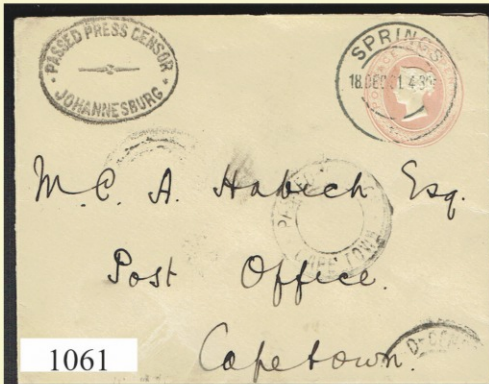 PASSED PRESS CENSOR
JOHANNESBURG
SPRINGS
18.DEC.01.4.30
M.C. A. Habich Esq.
Post Office.
Capetown.
1061